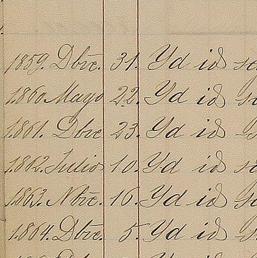 1859. Dbre. 31. Yd id
1860 Mayo 22. Yd id
1861. Dbre. 23. Yd id
1862. Julio 10. Yd id
1863. Nbre. 16. Yd id
1864. Dbre. 5. Yd id